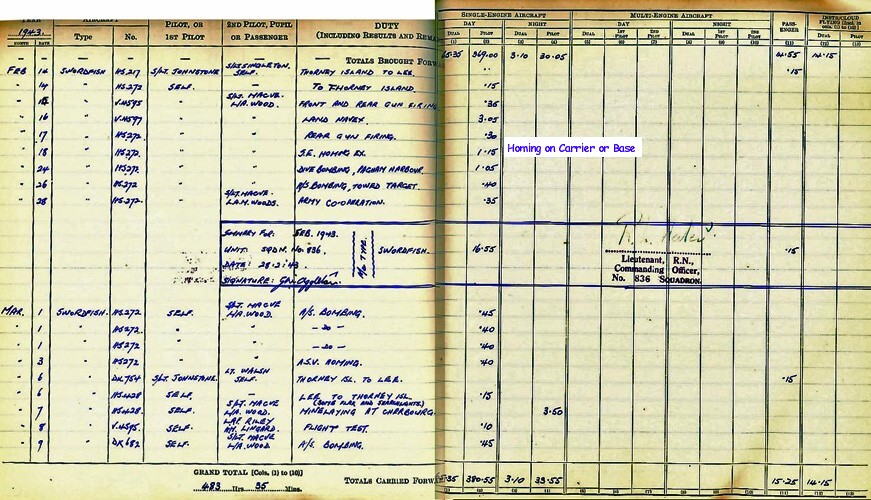 YEAR AIRCRAFT PILOT, OR 2ND PILOT, PUPIL DUTY SINGLE-ENGINE AIRCRAFT MULTI-ENGINE AIRCRAFT PASS- INSTR/CLOUD
1943. Type No. 1ST PILOT OR PASSENGER (INCLUDING RESULTS AND REMA DAY NIGHT DAY NIGHT ENGER
MONTH DATE DUAL PILOT DUAL PILOT DUAL 1ST PILOT 2ND PILOT DUAL 1ST PILOT 2ND PILOT DUAL PILOT
(1) (2) (3) (4) (5) (6) (7) (8) (9) (10) (11) (12) (13)
— — — — — — TOTALS BROUGHT FORW 369.00 3.10 30.05 14.15
FEB 14 SWORDFISH HS217 S/LT. JOHNSTONE. S/LT SINGLETON. SELF. THORNEY ISLAND TO LEE. .15
" 14 " HS272 SELF. — TO THORNEY ISLAND. .15
" " V4595 " S/LT. MACVE. L/A. WOOD. FRONT AND REAR GUN FIRING .35
" 16 " V4597 " " LAND NAVEX. 3.05
" 17 " HS272. " " REAR GUN FIRING. .30
" 18 " HS272. " " S.E. HOMING EX. 1.15 Homing on Carrier or Base
" 24 " HS272. " " DIVE BOMBING, PAGHAM HARBOUR. 1.05
" 26 " HS272 " " A/S BOMBING, TOWED TARGET. .40
" 28 " HS272. " S/LT. MACVE. L.A.M. WOODS. ARMY CO-OPERATION. .35
SUMMARY FOR: FEB. 1943.
UNIT: SQDN. No. 836. A/C TYPE. SWORDFISH. 16.55 .15
DATE: 28.2.43
SIGNATURE:
Lieutenant, R.N.,
Commanding Officer,
No. 836 SQUADRON.
MAR. 1 SWORDFISH. HS272 SELF. S/LT. MACVE L/A. WOOD. A/S. BOMBING. .45
" 1 " HS272. " " —DO— .40
" 1 " HS272 " " —DO— .40
" 3 " HS272 " " A.S.V. HOMING. .40
" 6 " DK754 S/LT. JOHNSTONE. LT. WALSH SELF. THORNEY ISL. TO LEE. .15
" 6 " HS428 SELF. — LEE TO THORNEY ISL. .15
" 7 " HS428. SELF. S/LT. MACVE L/A. WOOD. (SOME FLAK AND SEARCHLIGHTS) MINELAYING AT CHERBOURG. 3.50
" 8 " V4595. SELF. LAF. RILEY LINGARD. FLIGHT TEST. .10
" 9 " DK682 SELF. S/LT. MACVE L/A. WOOD A/S. BOMBING. .45
GRAND TOTAL [Cols. (1) to (10)]
483 Hrs 35 Mins. TOTALS CARRIED FORW 380.55 3.10 33.55 15.25 14.15
(1) (2) (3) (4) (5) (6) (7) (8) (9) (10) (11) (12) (13)